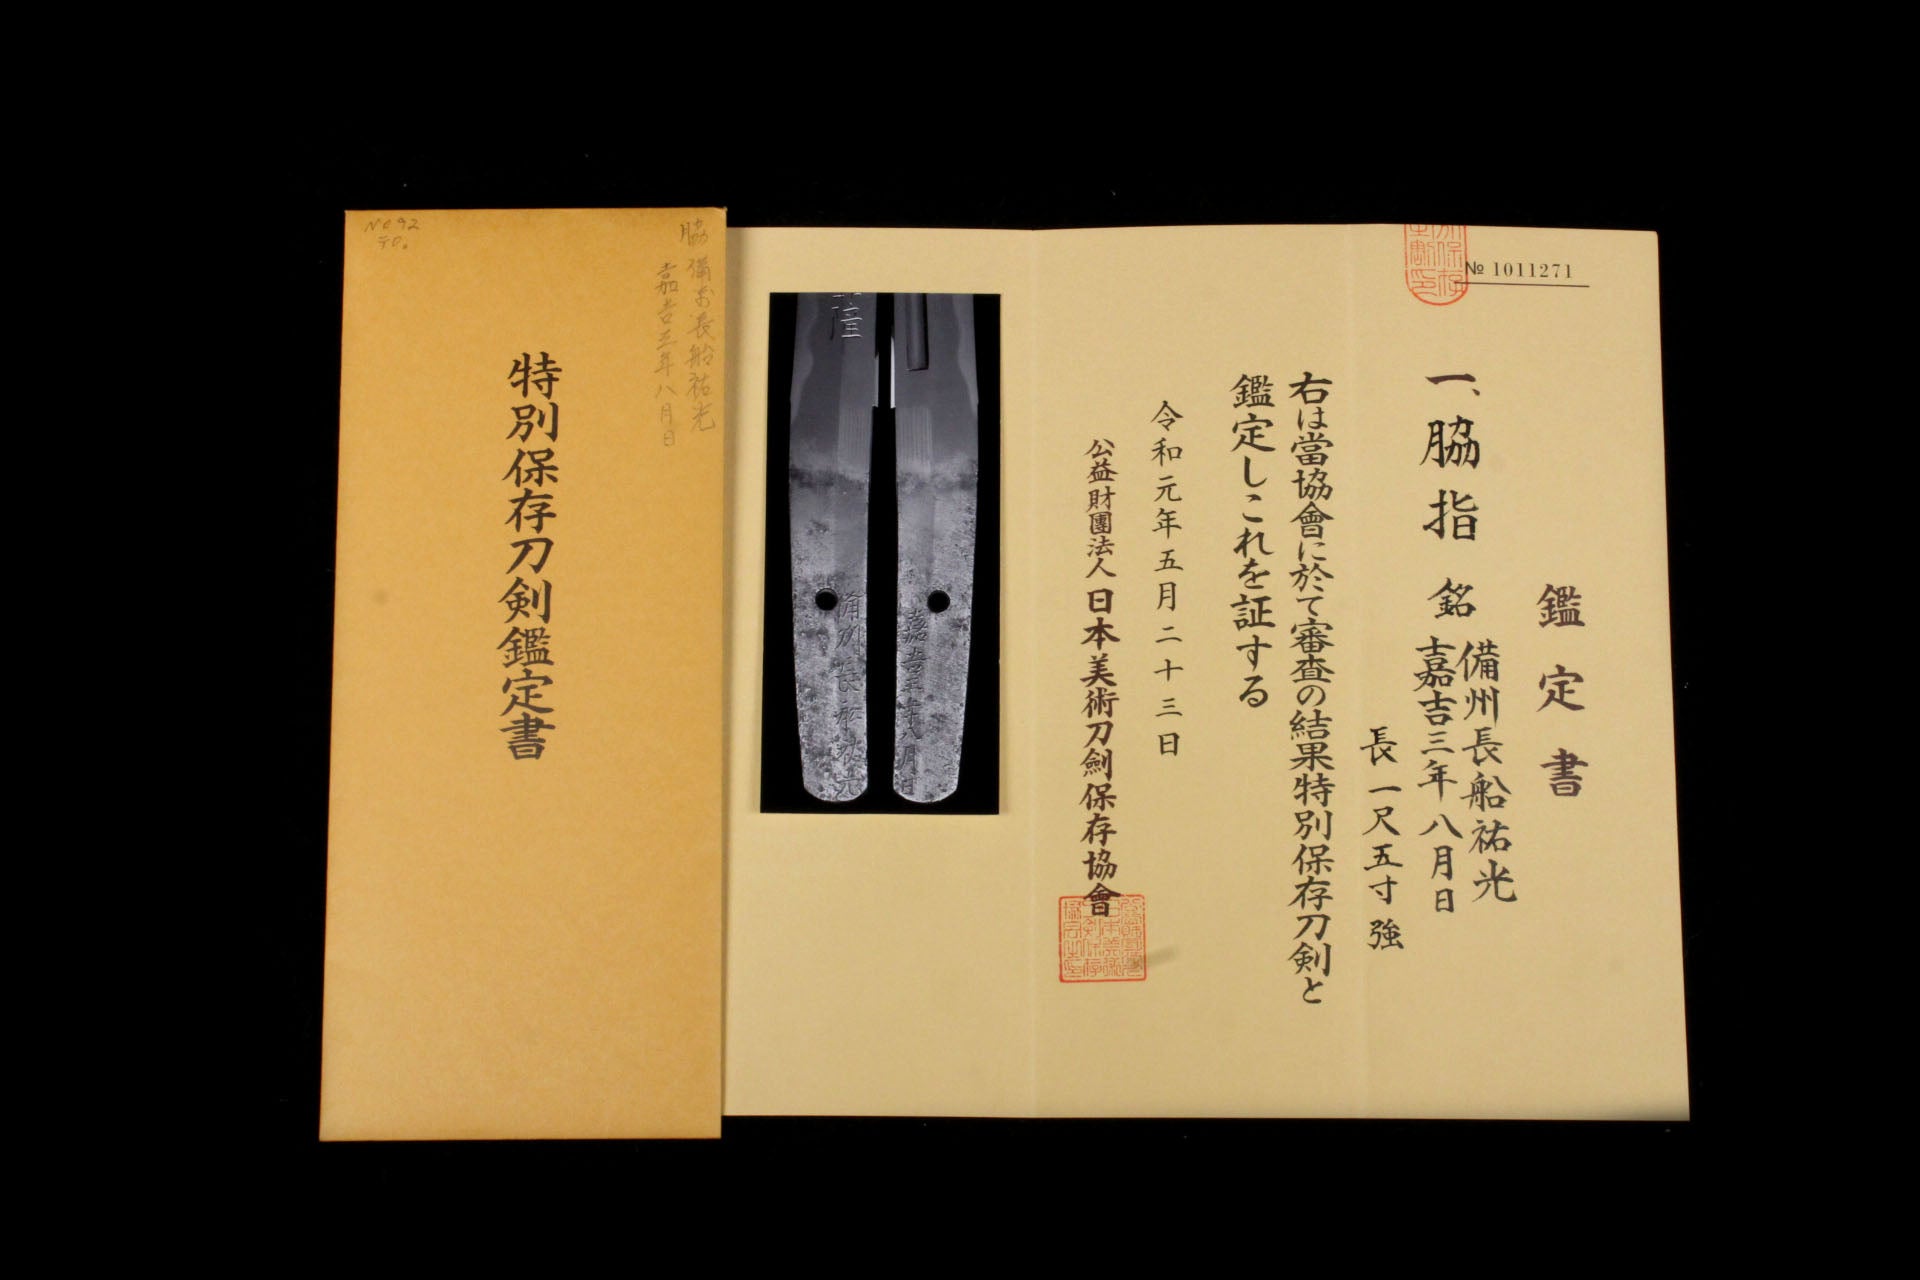 特別保存刀剣鑑定書
脇 備前長船祐光
嘉吉三年八月日
№ 1011271
鑑定書
一、脇指 銘 備州長船祐光
嘉吉三年八月日
長 一尺五寸強
右は當協會に於て審査の結果特別保存刀剣と
鑑定しこれを証する
令和元年五月二十三日
公益財團法人 日本美術刀劍保存協會
備州長船祐光
嘉吉三年八月日